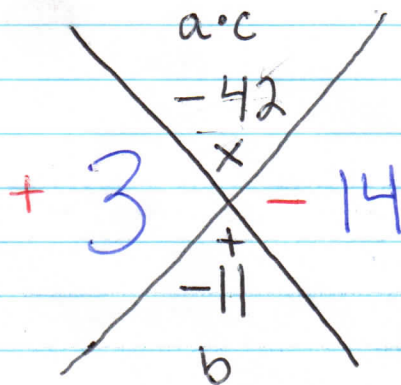 a·c
-42
×
+ 3 - 14
+
-11
b